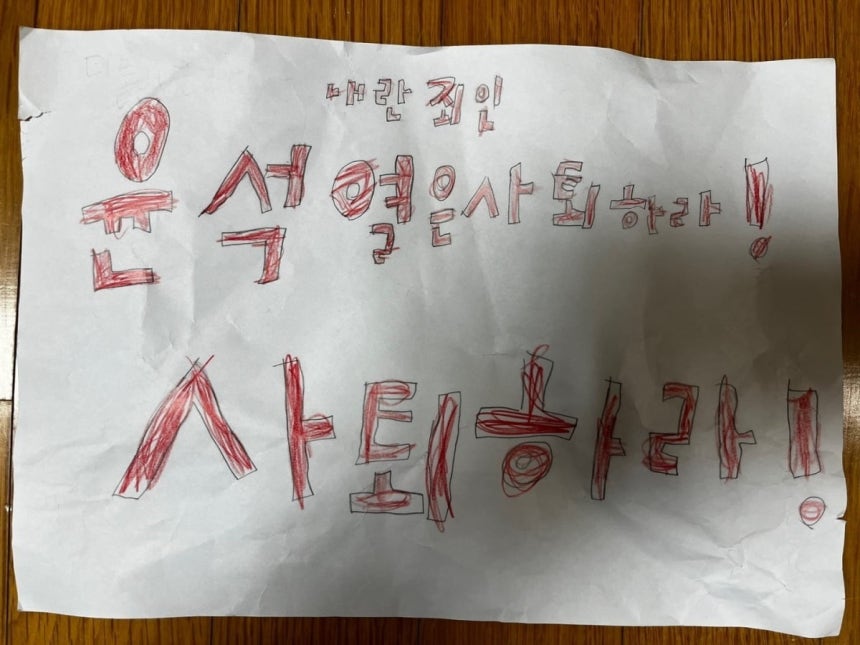 내란 죄인
윤석열은사퇴하라!
사퇴하라!